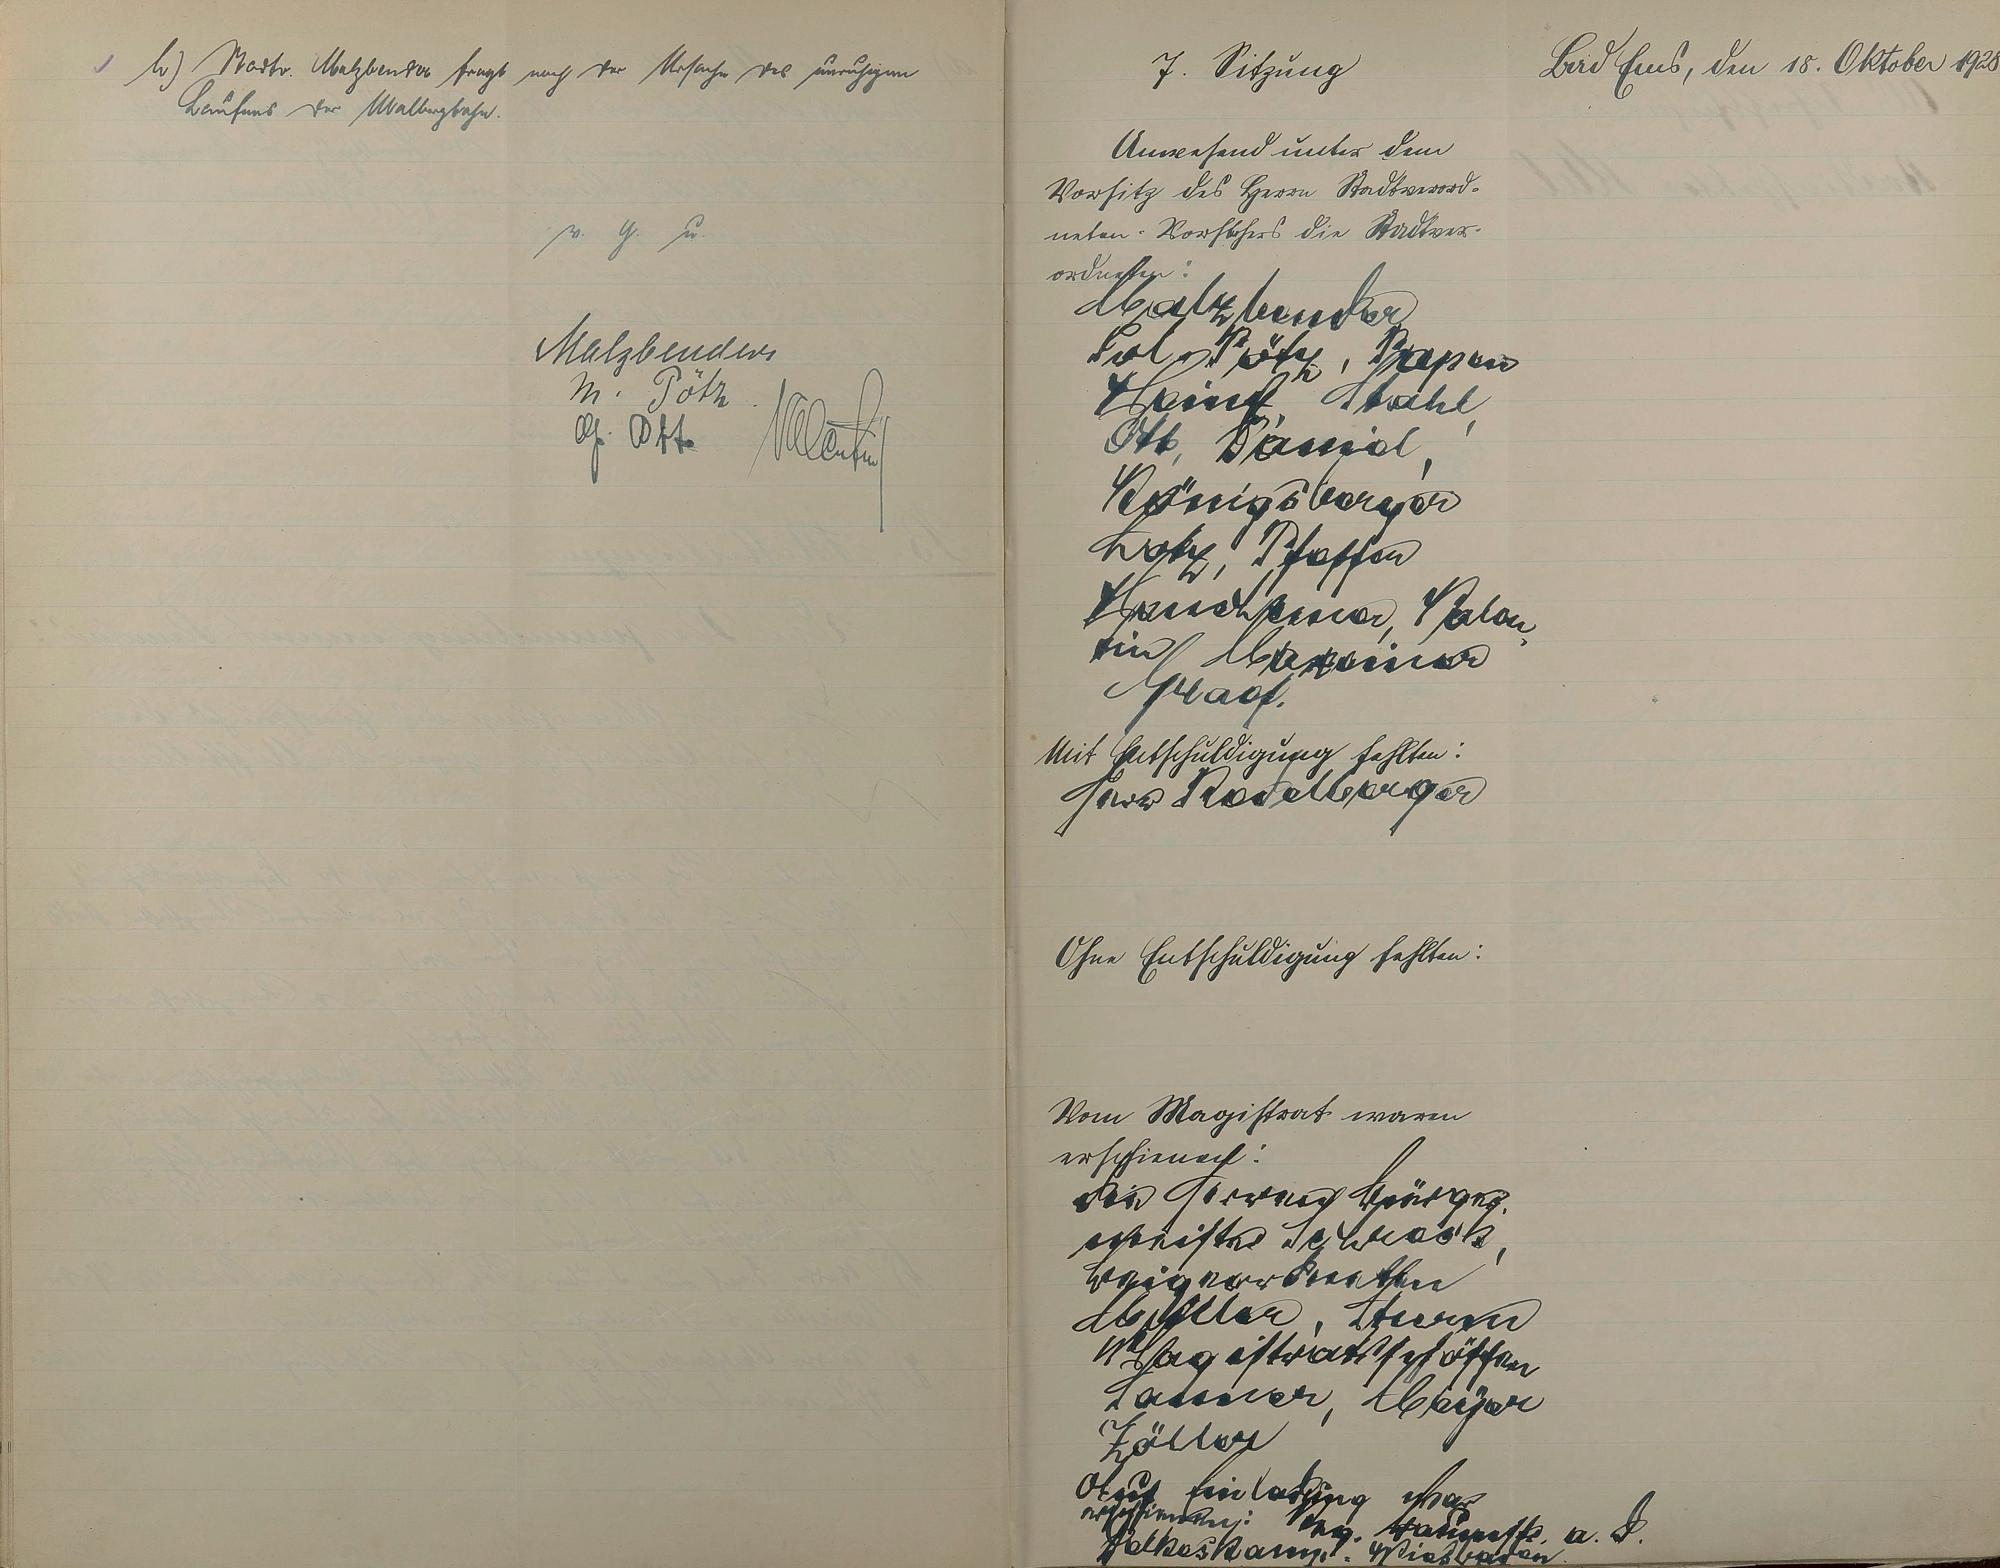 b) Stadtv. Malzbender fragt nach der Ursache des unruhigen
Laufens der Malbergbahn.
v. g. u.
Malzbender
M. Pötz.
G. Ott Valentin
7. Sitzung
Bad Ems, den 18. Oktober 1928
Anwesend unter dem
Vorsitz des Herrn Stadtverord-
neten-Vorstehers die Stadtver-
ordneten:
Malzbender
Pötz,
Stahl,
Ott,
Königsberger
Lotz, Pfaffen
Valen-
tin
Graef.
Mit Entschuldigung fehlten:
Herr
Ohne Entschuldigung fehlten:
Vom Magistrat waren
erschienen:
die Herren Bürger-
meister Schrack,
Beigeordneten
Müller, Sturm
Magistratsschöffen
Meyer
Zöller
Auf Einladung war
erschienen: a. D.
Wiesbaden